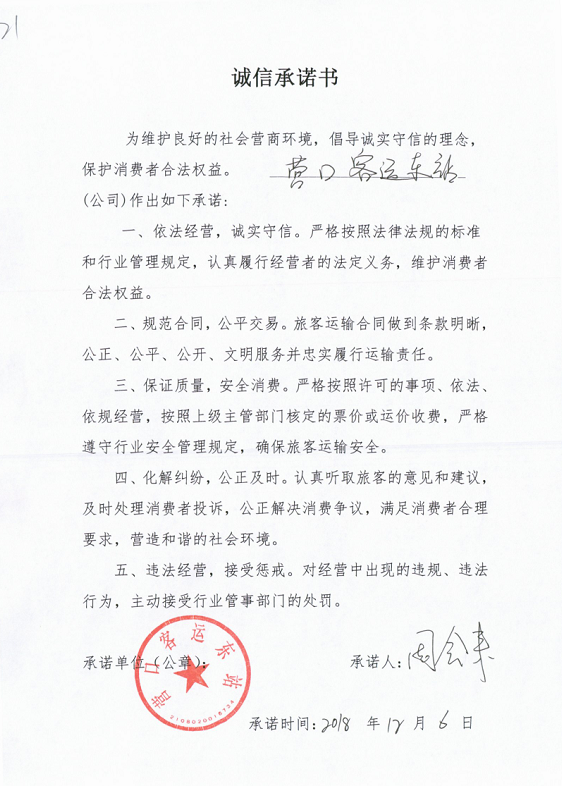 诚信承诺书
为维护良好的社会营商环境，倡导诚实守信的理念，
保护消费者合法权益。 营口客运东站
(公司)作出如下承诺:
一、依法经营，诚实守信。严格按照法律法规的标准
和行业管理规定，认真履行经营者的法定义务，维护消费者
合法权益。
二、规范合同，公平交易。旅客运输合同做到条款明晰，
公正、公平、公开、文明服务并忠实履行运输责任。
三、保证质量，安全消费。严格按照许可的事项、依法、
依规经营，按照上级主管部门核定的票价或运价收费，严格
遵守行业安全管理规定，确保旅客运输安全。
四、化解纠纷，公正及时。认真听取旅客的意见和建议，
及时处理消费者投诉，公正解决消费争议，满足消费者合理
要求，营造和谐的社会环境。
五、违法经营，接受惩戒。对经营中出现的违规、违法
行为，主动接受行业管事部门的处罚。
承诺单位（公章）： 承诺人：
营口客运东站
承诺时间：2018 年 12 月 6 日